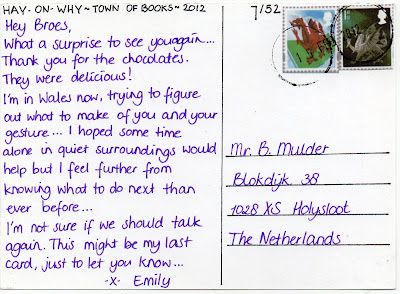 HAY-ON-WHY~TOWN OF BOOKS~2012
7/52
Hey Broes,
What a surprise to see youagain...
Thank you for the chocolates.
They were delicious!
I'm in Wales now, trying to figure
out what to make of you and your
gesture... I hoped some time
alone in quiet surroundings would
help but I feel further from
knowing what to do next than
ever before...
I'm not sure if we should talk
again. This might be my last
card, just to let you know...
-x- Emily
Mr. B. Mulder
Blokdijk 38
1028 XS Holysloot
The Netherlands